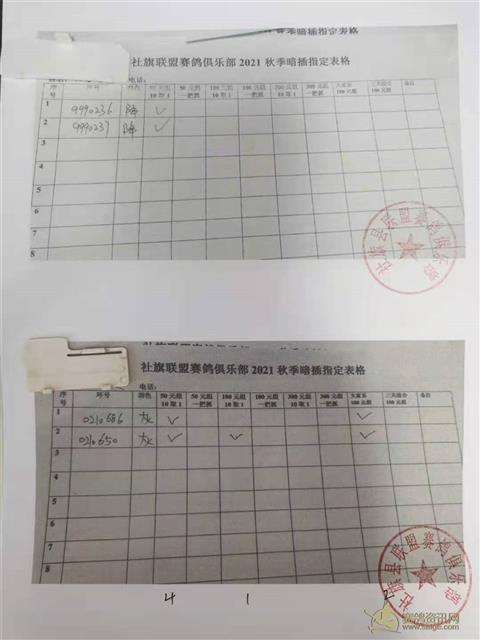 社旗联盟赛鸽俱乐部 2021 秋季暗插指定表格
电话：
序号 环号 羽色 50 元组 10 取 1 50 元组 一把抓 100 元组 10 取 1 100 元组 一把抓 200 元组 10 取 1 200 元组 一把抓 300 元组 一把抓 100 元组 三关综合 100 元组 备注
1 9990236 降 ✓
2 9990237 降 ✓
3
4
5
6
7
8
社旗县联盟赛鸽俱乐部
社旗联盟赛鸽俱乐部 2021 秋季暗插指定表格
电话：
序号 环号 羽色 50 元组 10 取 1 50 元组 一把抓 100 元组 10 取 1 100 元组 一把抓 300 元组 一把抓 100 元组 三关综合 100 元组 备注
1 0210686 ✓ ✓
2 0210650 ✓ ✓ ✓
3
4
5
6
7
8
社旗县联盟赛鸽俱乐部
4 1 2
赛鸽资讯网
www.saige.com